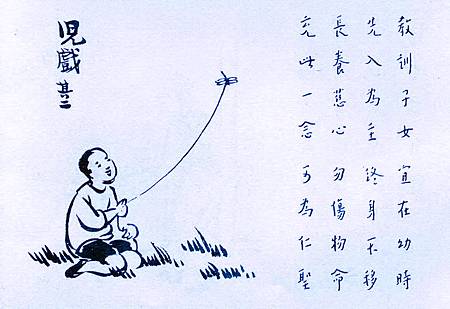 兒戲
其二
教訓子女宜在幼時
先入為主終身不移
長養慈心勿傷物命
充此一念可為仁聖